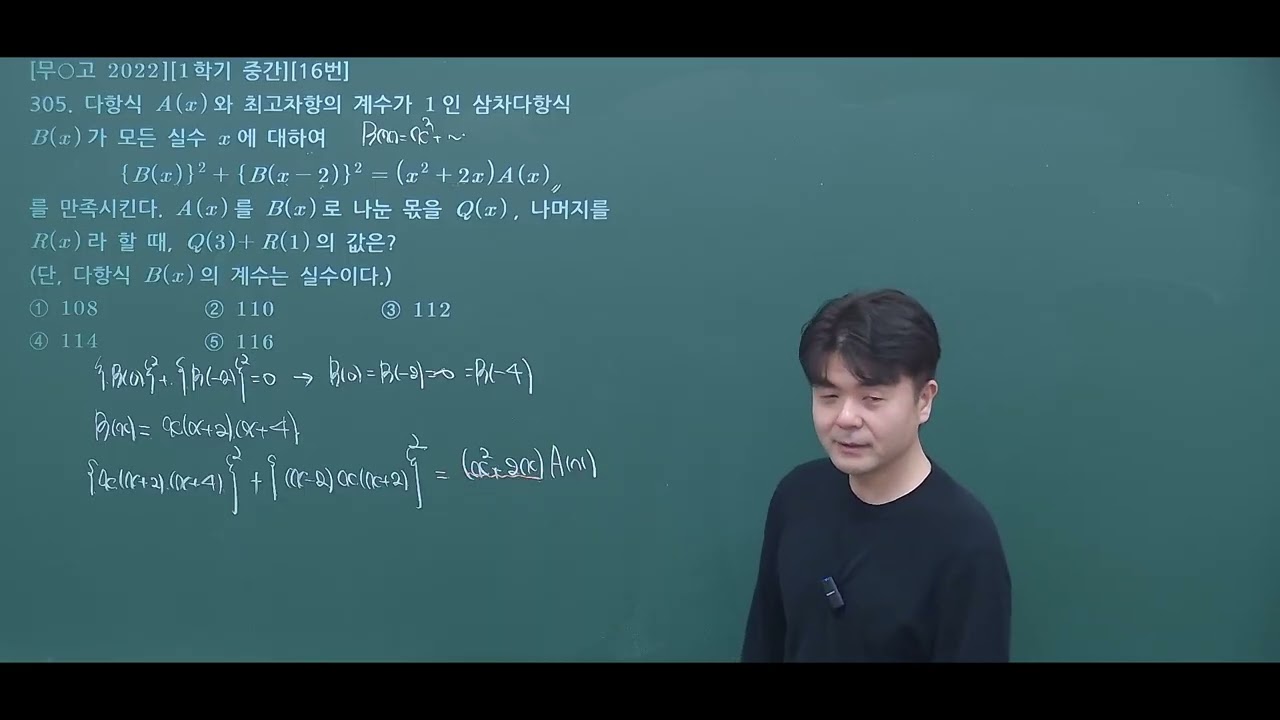 [무○고 2022][1학기 중간][16번]
305. 다항식 A(x)와 최고차항의 계수가 1인 삼차다항식
B(x)가 모든 실수 x에 대하여 B(x)=x³+~
{B(x)}²+{B(x-2)}²=(x²+2x)A(x)
를 만족시킨다. A(x)를 B(x)로 나눈 몫을 Q(x), 나머지를
R(x)라 할 때, Q(3)+R(1)의 값은?
(단, 다항식 B(x)의 계수는 실수이다.)
① 108 ② 110 ③ 112
④ 114 ⑤ 116
{B(0)}²+{B(-2)}²=0 → B(0)=B(-2)=0=B(-4)
B(x)=x(x+2)(x+4)
{x(x+2)(x+4)}²+{(x-2)x(x+2)}²=(x²+2x)A(x)